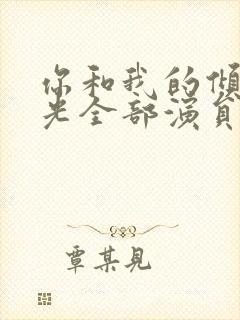 你和我的倾
光全部演员
覃某見